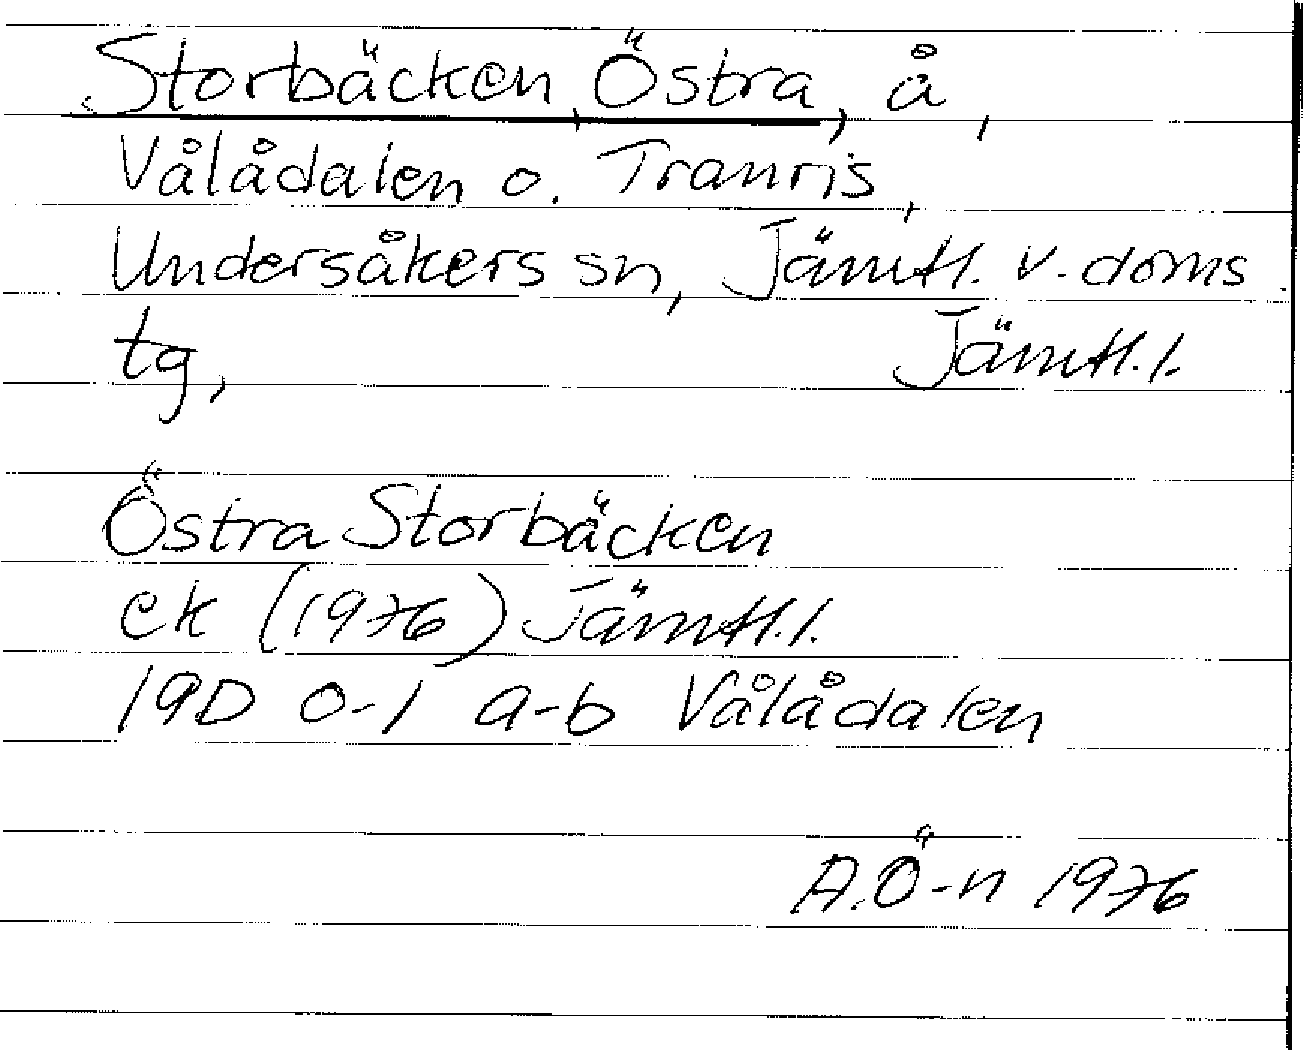 Storbäcken, Östra, å,
Vålådalen o. Tranris,
Undersåkers sn, Jämtl. v. doms
tg, Jämtl. l.
Östra Storbäcken
ek (1976) Jämtl. l.
19D 0-1 a-b Vålådalen
A.Ö-n 1976